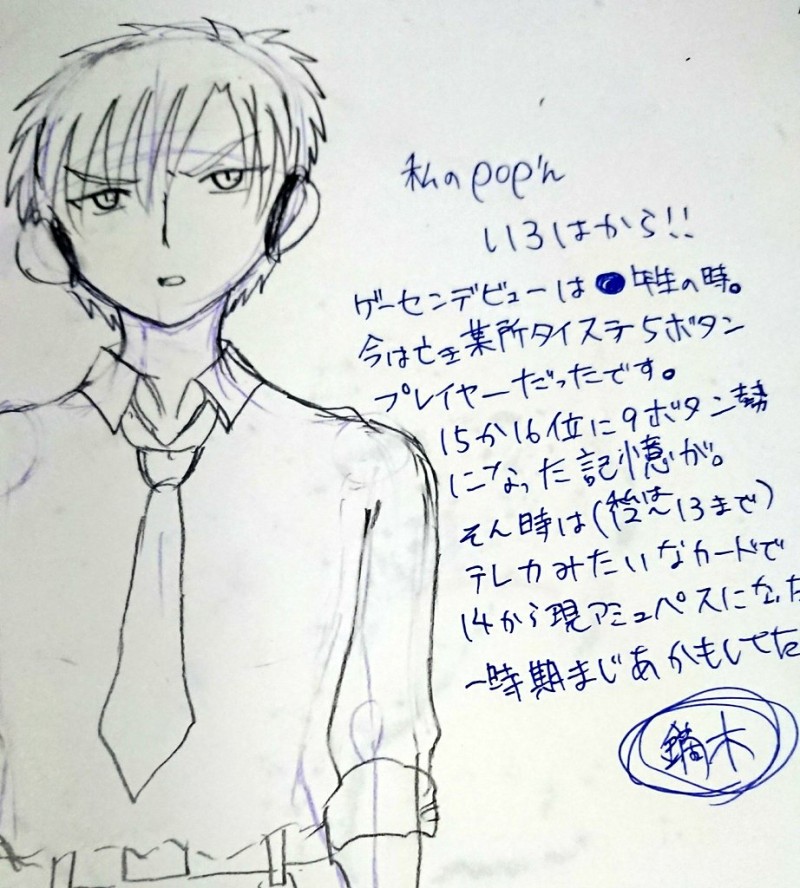 私のpop'n
いろはから!!
ゲーセンデビューは●年生の時。
今は亡き某所タイステ5ボタン
プレイヤーだったです。
15か16位に9ボタン勢
になった記憶が。
そん時は(後は13まで)
テレカみたいなカードで
14から現アミュパスになった
一時期まじあかもしてた
鏑木